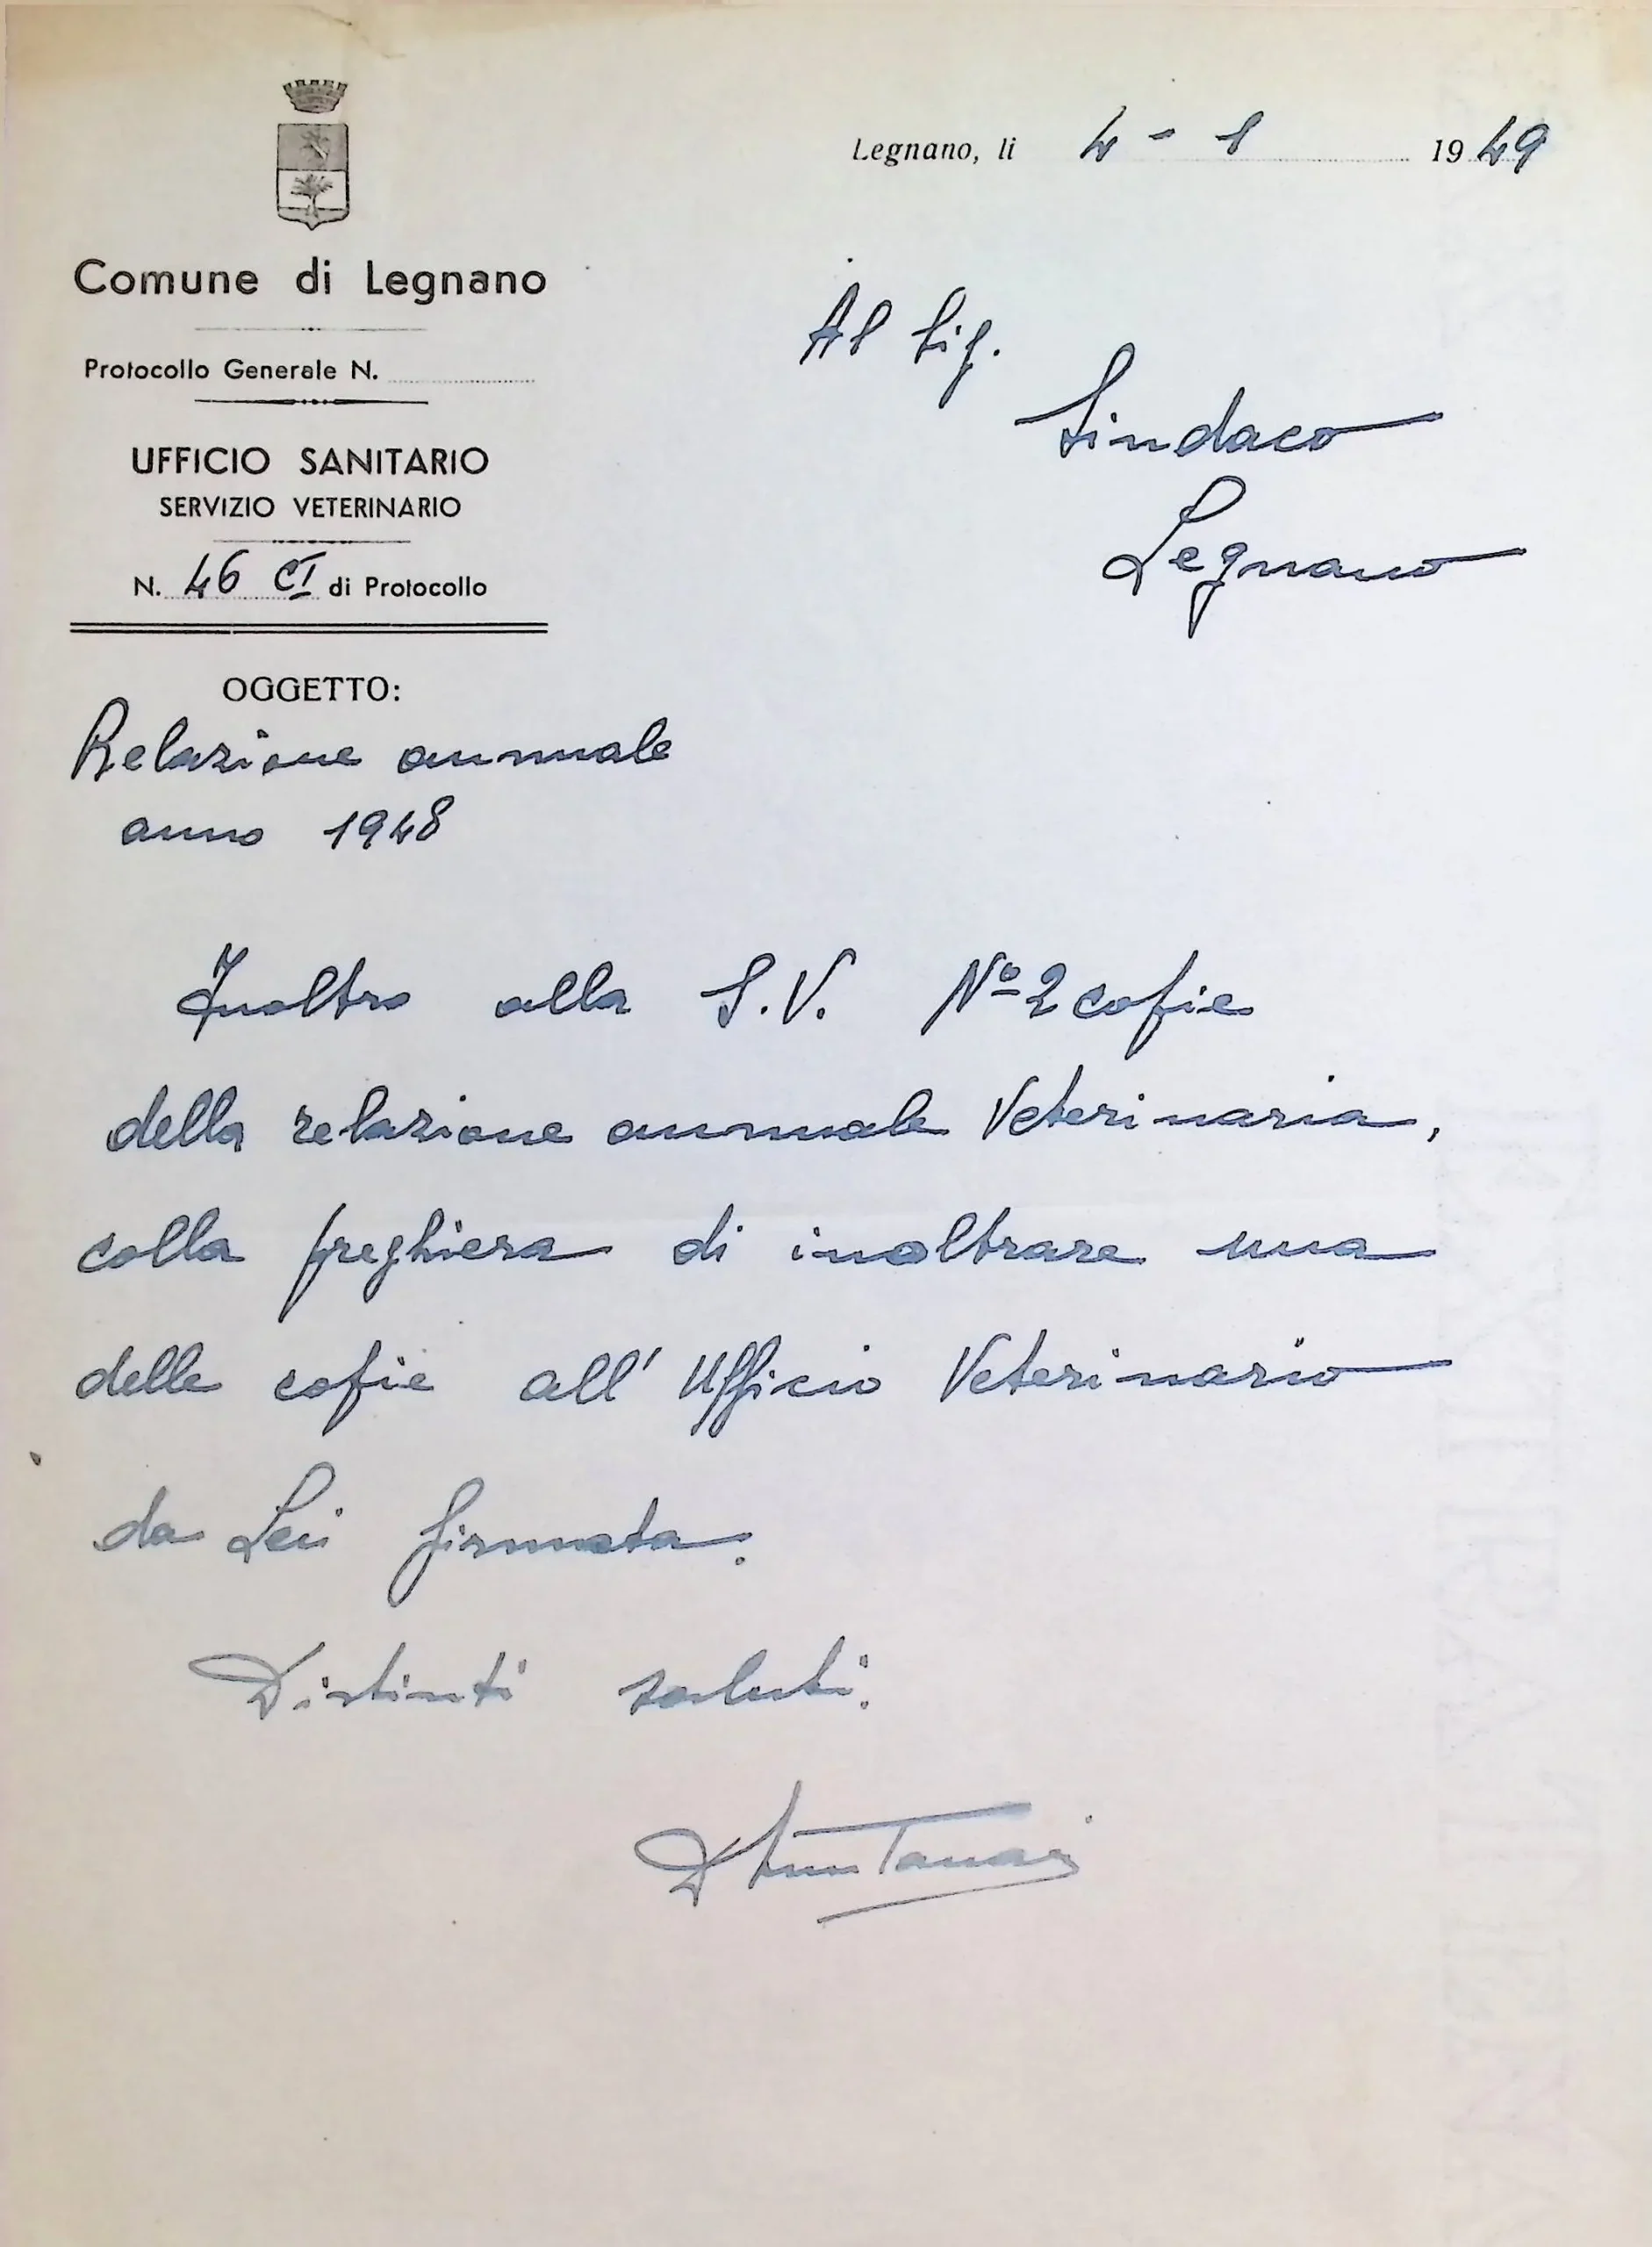 Legnano, li 4 - 1 1949
Comune di Legnano
Protocollo Generale N.
UFFICIO SANITARIO
SERVIZIO VETERINARIO
N. 46 CI di Protocollo
Al Sig.
Sindaco
Legnano
OGGETTO:
Relazione annuale
anno 1948
Inoltro alla S.V. Nº 2 copie
della relazione annuale Veterinaria,
colla preghiera di inoltrare una
delle copie all' Ufficio Veterinario
da Lei firmata.
Distinti saluti.